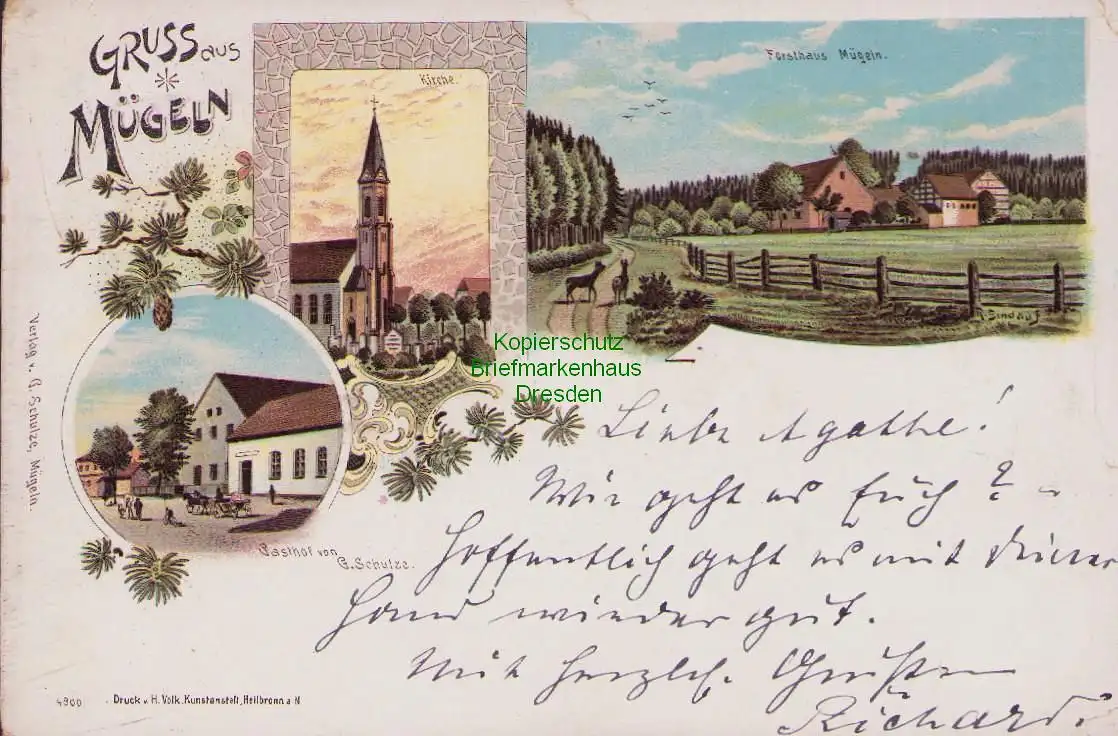 GRUSS aus
MÜGELN
Kirche.
Forsthaus Mügeln.
Kopierschutz
Briefmarkenhaus
Dresden
Verlag v. G. Schulze, Mügeln.
Gasthof von
G. Schulze.
Liebe Agathe!
Wie geht es Euch? –
Hoffentlich geht es mit Deiner
Hand wieder gut.
Mit herzlch. Grüßen
Richard.
4900
Druck v. H. Volk, Kunstanstalt, Heilbronn a N